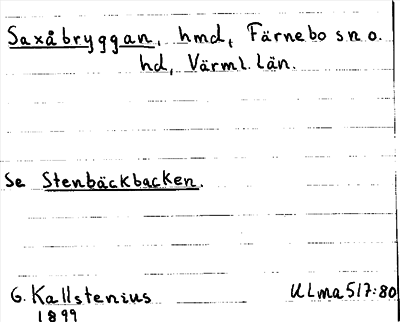 Saxåbryggan, hmd, Färnebo sn o.
hd, Värml. län.
Se Stenbäckbacken.
G. Kallstenius ULma 517:80
1899